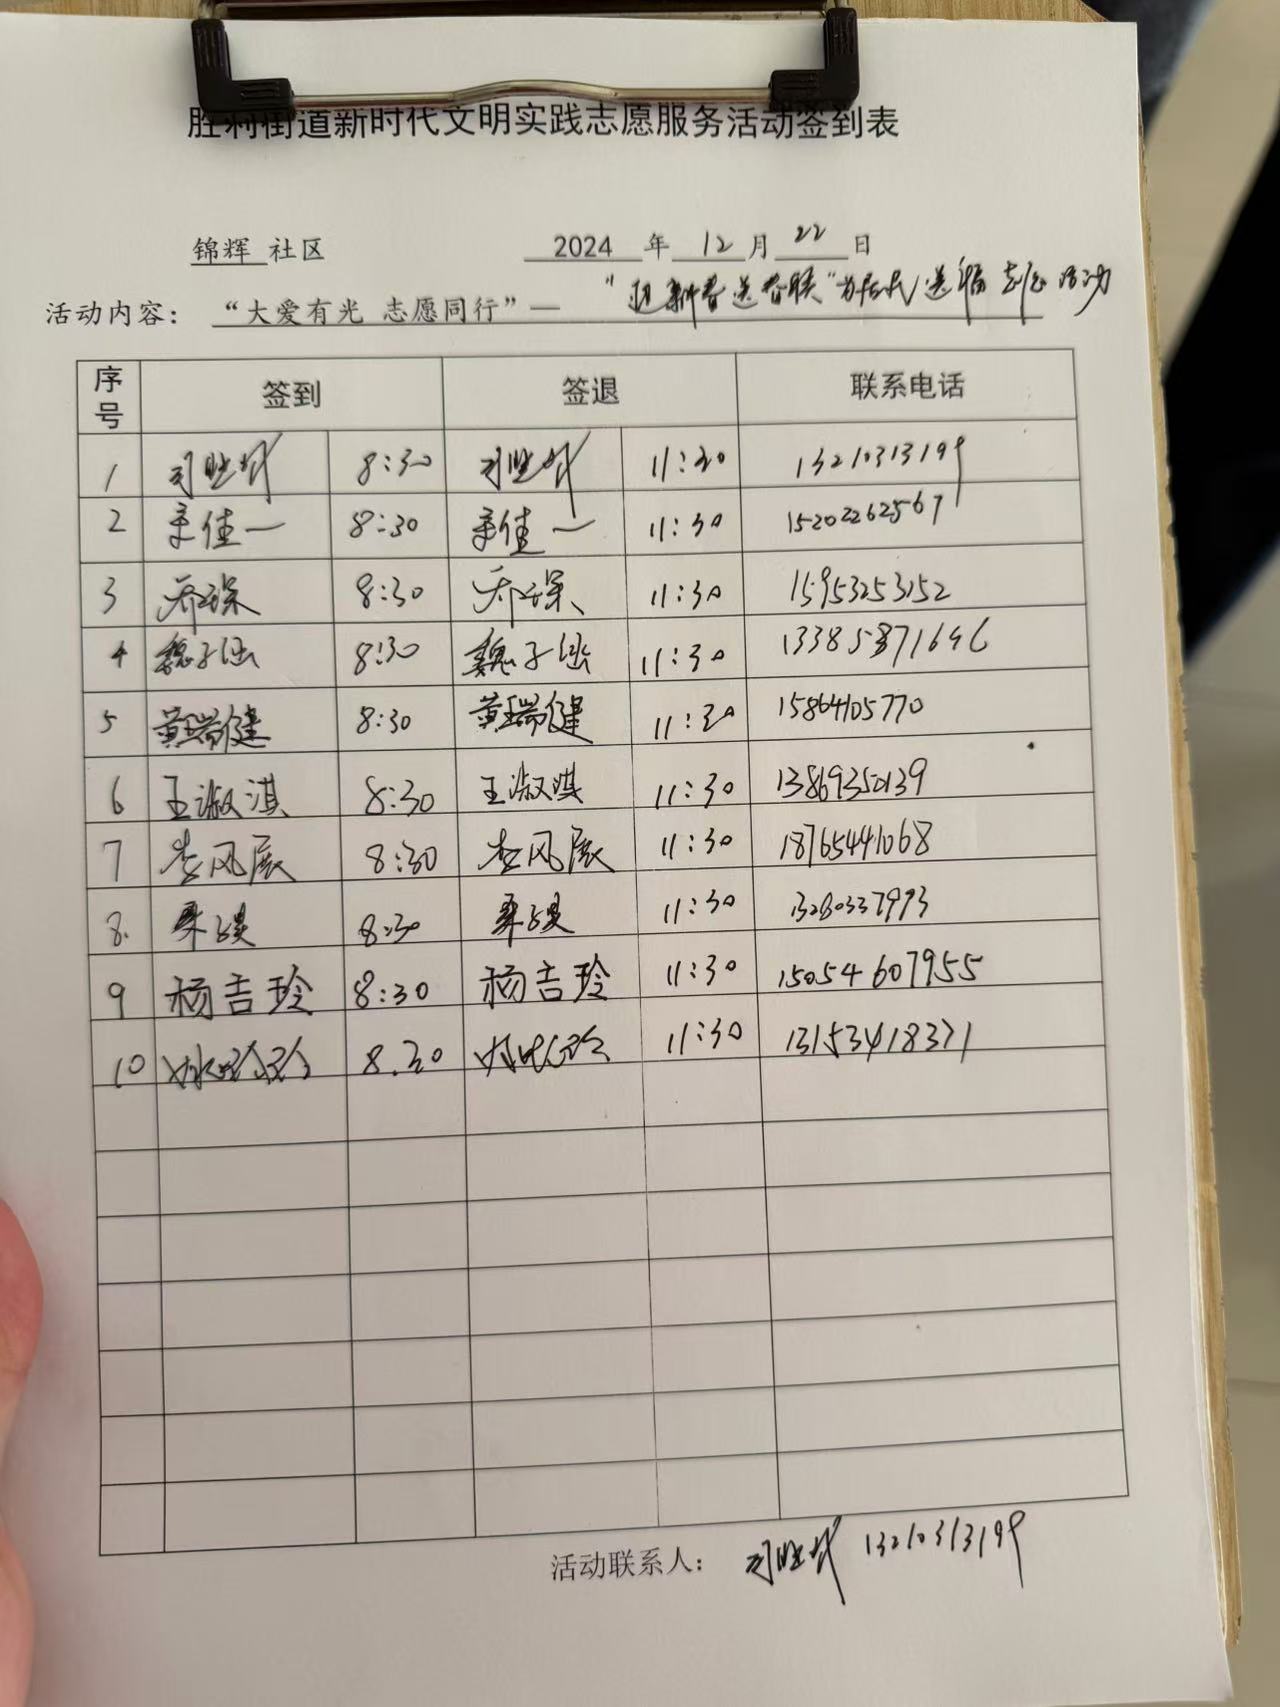 胜利街道新时代文明实践志愿服务活动签到表
锦辉 社区 2024 年 12 月 22 日
活动内容： “大爱有光 志愿同行”— “迎新春送春联”为居民送福志愿活动
序号 签到 签退 联系电话
1 8:30 11:30 13210313199
2 佳一 8:30 佳一 11:30 15202262567
3 乔琛 8:30 乔琛 11:30 15953253152
4 魏子涵 8:30 魏子涵 11:30 13385371646
5 黄瑞健 8:30 黄瑞健 11:30 15864105770
6 王淑淇 8:30 王淑淇 11:30 13869350139
7 李风展 8:30 李风展 11:30 18765441068
8. 8:30 11:30 13280337993
9 杨吉玲 8:30 杨吉玲 11:30 15054607955
10 8.30 11:30 13153418371
活动联系人： 13210313199